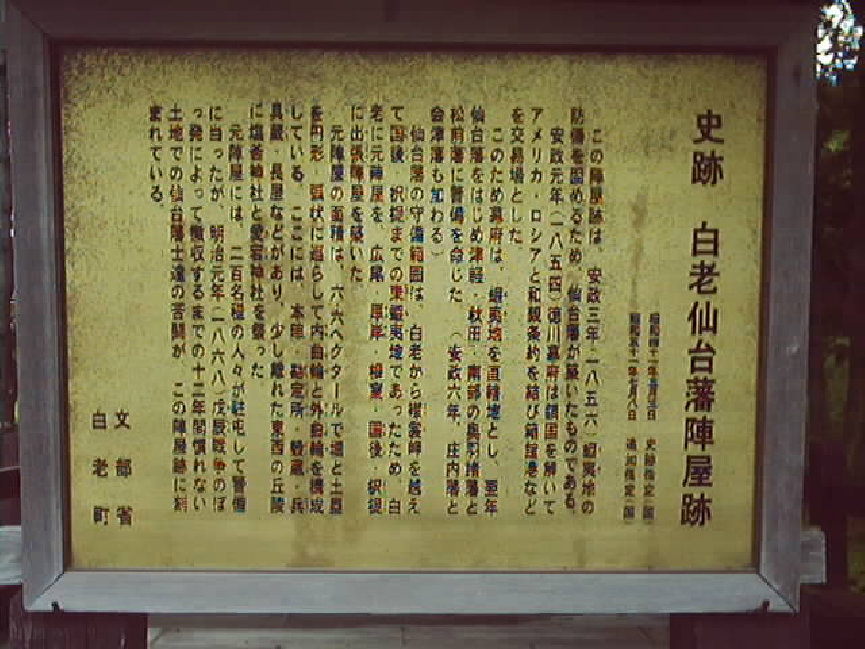 史跡　白老仙台藩陣屋跡
昭和四十一年　史跡指定（国）
昭和五十一年七月八日　追加指定（国）
この陣屋跡は、安政三年（一八五六）蝦夷地の
防備を固めるため、仙台藩が築いたものである。
安政元年（一八五四）徳川幕府は鎖国を解いて
アメリカ・ロシアと和親条約を結び箱館港など
を交易場とした。
このため幕府は、蝦夷地を直轄地とし、翌年
仙台藩をはじめ津軽・秋田・南部の奥羽諸藩と
松前藩に警備を命じた。（安政六年、庄内藩と
会津藩も加わる）
仙台藩の守備範囲は、白老から襟裳岬を越え
て国後・択捉までの東蝦夷地であったため、白
老に元陣屋を、広尾・厚岸・根室・国後・択捉
に出張陣屋を築いた。
元陣屋の面積は、六六ヘクタールで堀と土塁
を円形・弧状に巡らして内曲輪と外曲輪を構成
している。ここには、本陣・勘定所・穀蔵・兵
具蔵・長屋などがあり、少し離れた東西の丘陵
に塩釜神社と愛宕神社を祭った。
元陣屋には、二百名程の人々が駐屯して警備
に当ったが、明治元年（一八六八）戊辰戦争のぼ
っ発によって撤収するまでの十二年間慣れない
土地での仙台藩士達の苦闘が、この陣屋跡に刻
まれている。
文部省
白老町